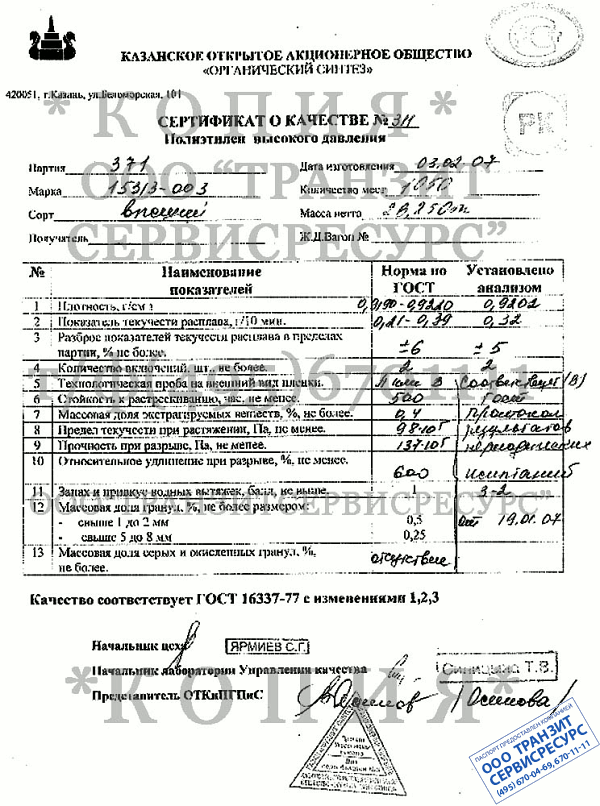 КАЗАНСКОЕ ОТКРЫТОЕ АКЦИОНЕРНОЕ ОБЩЕСТВО
«ОРГАНИЧЕСКИЙ СИНТЕЗ»
420051, г.Казань, ул.Беломорская, 101
* КОПИЯ *
СЕРТИФИКАТ О КАЧЕСТВЕ № 311
Полиэтилен высокого давления
РК
Партия 371 Дата изготовления 03.02.07
Марка 15313-003 Количество мест 1050
ООО "ТРАНЗИТ
Сорт высший Масса нетто 26,250тн
СЕРВИСРЕСУРС"
Получатель Ж.Д.Вагон №
№ Наименование показателей Норма по ГОСТ Установлено анализом
1 Плотность, г/см 3 0,9190-0,9220 0,9202
2 Показатель текучести расплава, г/10 мин. 0,21-0,39 0,32
3 Разброс показателей текучести расплава в пределах
партии, % не более. ±6 ±5
4 Количество включений, шт., не более. 2 2
5 Технологическая проба на внешний вид пленки. В Соответствует (В)
6 Стойкость к растрескиванию, час, не менее. 500 Гост
7 Массовая доля экстрагируемых веществ, %, не более. 0,4 Протокол
8 Предел текучести при растяжении, Па, не менее. 98·10⁵ результатов
9 Прочность при разрыве, Па, не менее. 137·10⁵ периодических
10 Относительное удлинение при разрыве, %, не менее. 600 испытаний
11 Запах и привкус водных вытяжек, балл, не выше. 1 3-2
ООО "ТРАНЗИТ СЕРВИСРЕСУРС"
12 Массовая доля гранул, %, не более размером:
- свыше 1 до 2 мм 0,5 от 19.01.07
- свыше 5 до 8 мм 0,25
13 Массовая доля серых и окисленных гранул, %,
не более. отсутствие
Качество соответствует ГОСТ 16337-77 с изменениями 1,2,3
Начальник цеха ЯРМИЕВ С.Г.
Начальник лаборатории Управления качества Синицына Т.В.
* КОПИЯ *
Представитель ОТКиПГПиС Осипова
ПАСПОРТ ПРЕДОСТАВЛЕН КОМПАНИЕЙ
ООО ТРАНЗИТ
СЕРВИСРЕСУРС
(495) 670-04-69, 670-11-11